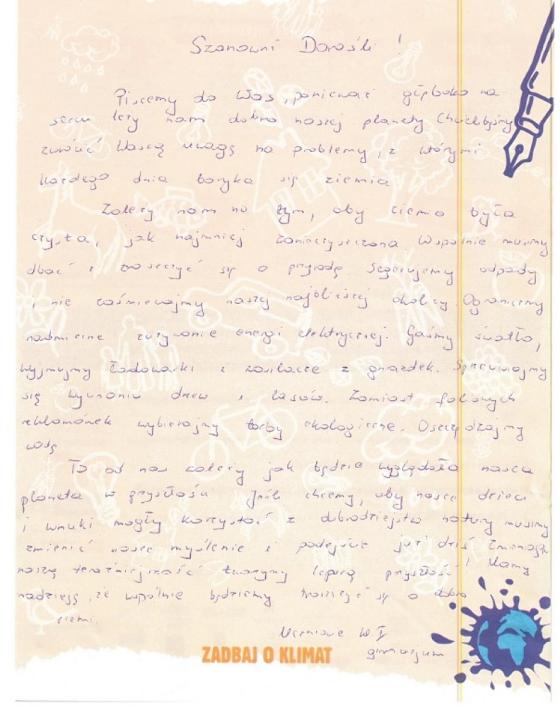 Szanowni Dorośli !
Piszemy do Was, ponieważ głęboko na
sercu leży nam dobro naszej planety. Chcielibyśmy
zwrócić Waszą uwagę na problemy, z którymi
każdego dnia boryka się ziemia.
Zależy nam na tym, aby ziemia była
czysta, jak najmniej zanieczyszczona. Wspólnie musimy
dbać i troszczyć się o przyrodę. Segregujemy odpady
i nie zaśmiecajmy naszej najbliższej okolicy. Ograniczmy
nadmierne zużywanie energii elektrycznej. Gaśmy światło,
wyjmujmy ładowarki i zasilacze z gniazdek. Sprzeciwiajmy
się wycinaniu drzew i lasów. Zamiast foliowych
reklamówek wybierajmy torby ekologiczne. Oszczędzajmy
wodę.
To od nas zależy jak będzie wyglądała nasza
planeta w przyszłości. Jeśli chcemy, aby nasze dzieci
i wnuki mogły korzystać z dobrodziejstw natury musimy
zmienić nasze myślenie i podejście już dziś. Zmieniając
naszą teraźniejszość tworzymy lepszą przyszłość! Mamy
nadzieję, że wspólnie będziemy troszczyć się o dobro
ziemi.
Uczniowie kl. I
gimnazjum
ZADBAJ O KLIMAT